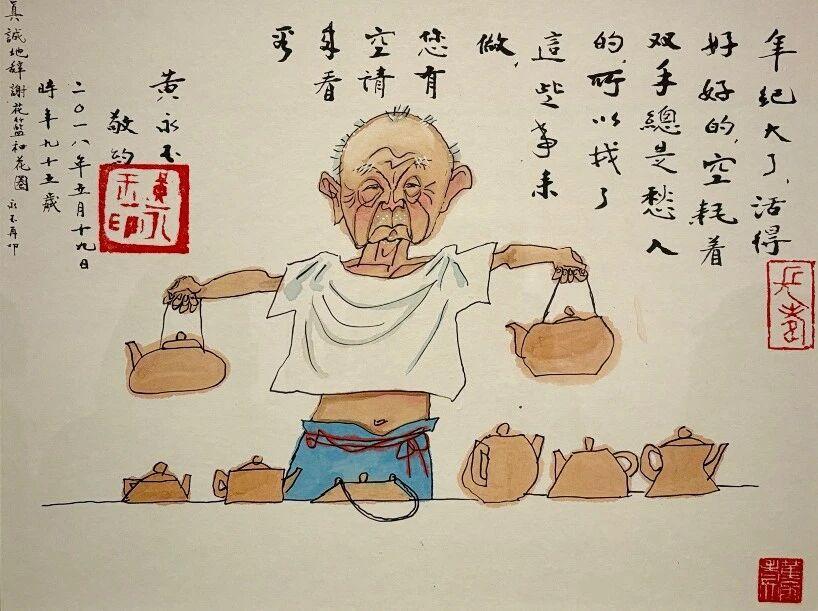 年纪大了,活得
好好的,空耗着
双手總是愁人
的,所以找了
這些事来
做,
您有
空请
来看
看
黄永玉
敬约
二〇一八年五月十九日
時年九十五歲
真誠地辞謝花籃和花圈 永玉再叩
黄永玉印